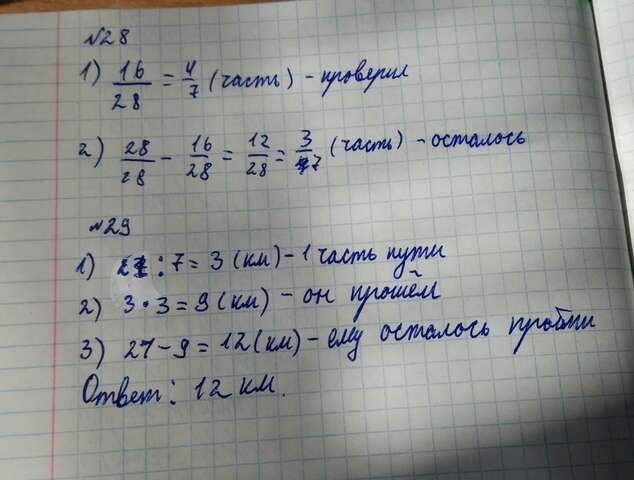 №28
1) 16/28 = 4/7 (часть) - проверил
2) 28/28 - 16/28 = 12/28 = 3/7 (часть) - осталось
№29
1) 21 : 7 = 3 (км) - 1 часть пути
2) 3 · 3 = 9 (км) - он прошём
3) 21 - 9 = 12 (км) - ему осталось пройти
Ответ: 12 км.